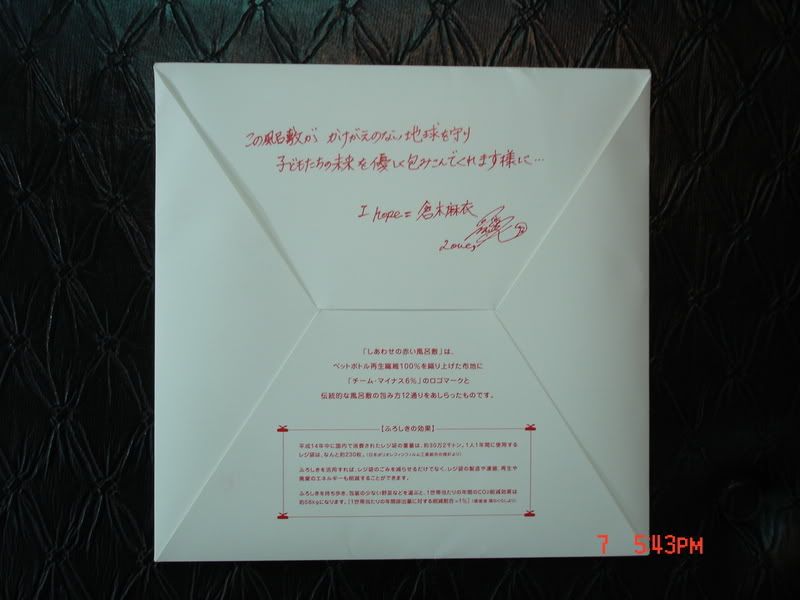 この風呂敷が かけがえのない地球を守り
子どもたちの未来を優しく包みこんでくれます様に…
I hope= 倉木麻衣
Love,
「しあわせの赤い風呂敷」は、
ペットボトル再生繊維100％を織り上げた布地に
「チーム・マイナス6％」のロゴマークと
伝統的な風呂敷の包み方12通りをあしらったものです。
【ふろしきの効果】
平成14年中に国内で消費されたレジ袋の重量は、約30万2千トン。1人1年間に使用する
レジ袋は、なんと約230枚。（日本ポリオレフィンフィルム工業組合の推計より）
ふろしきを活用すれば、レジ袋のごみを減らせるだけでなく、レジ袋の製造や運搬、再生や
廃棄のエネルギーも削減することができます。
ふろしきを持ち歩き、包装の少ない野菜などを選ぶと、1世帯当たりの年間のCO2削減効果は
約58kgになります。［1世帯当たりの年間排出量に対する削減割合=1％］
7 5:43PM